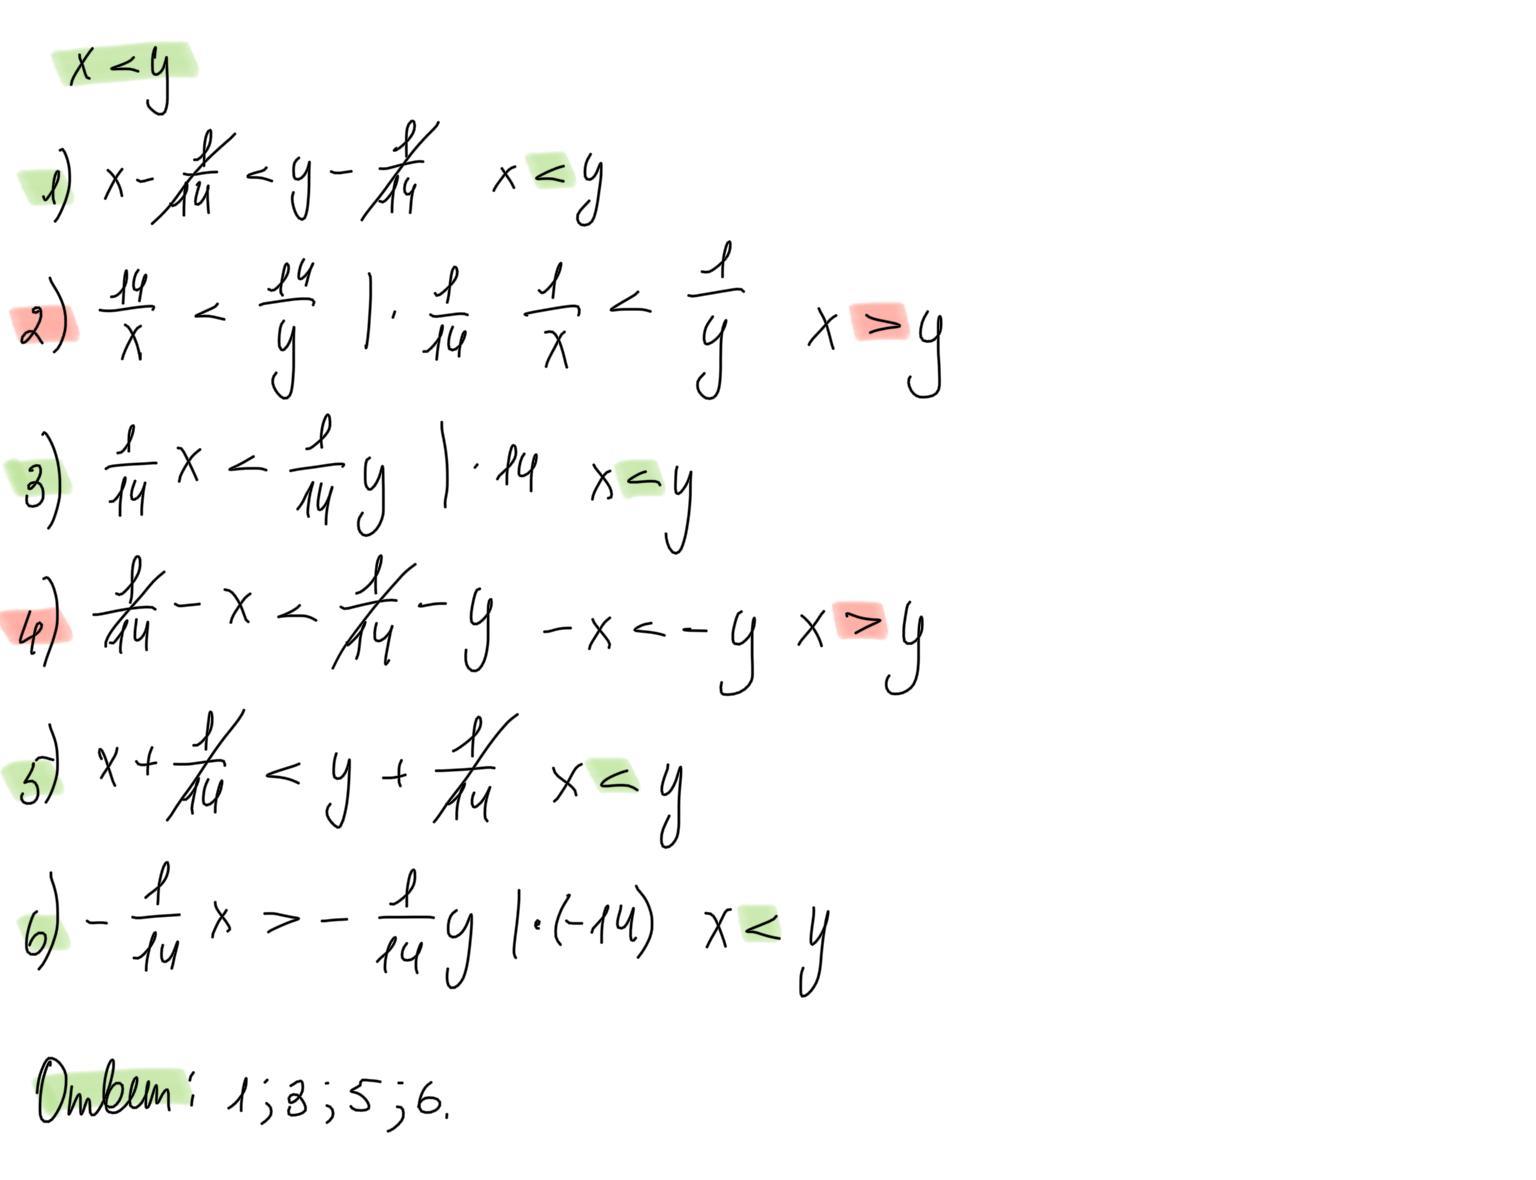 x < y
1) x - 1/14 < y - 1/14 x < y
2) 14/x < 14/y | · 1/14 1/x < 1/y x > y
3) 1/14 x < 1/14 y | · 14 x < y
4) 1/14 - x < 1/14 - y -x < -y x > y
5) x + 1/14 < y + 1/14 x < y
6) - 1/14 x > - 1/14 y | · (-14) x < y
Ответ: 1; 3; 5; 6.